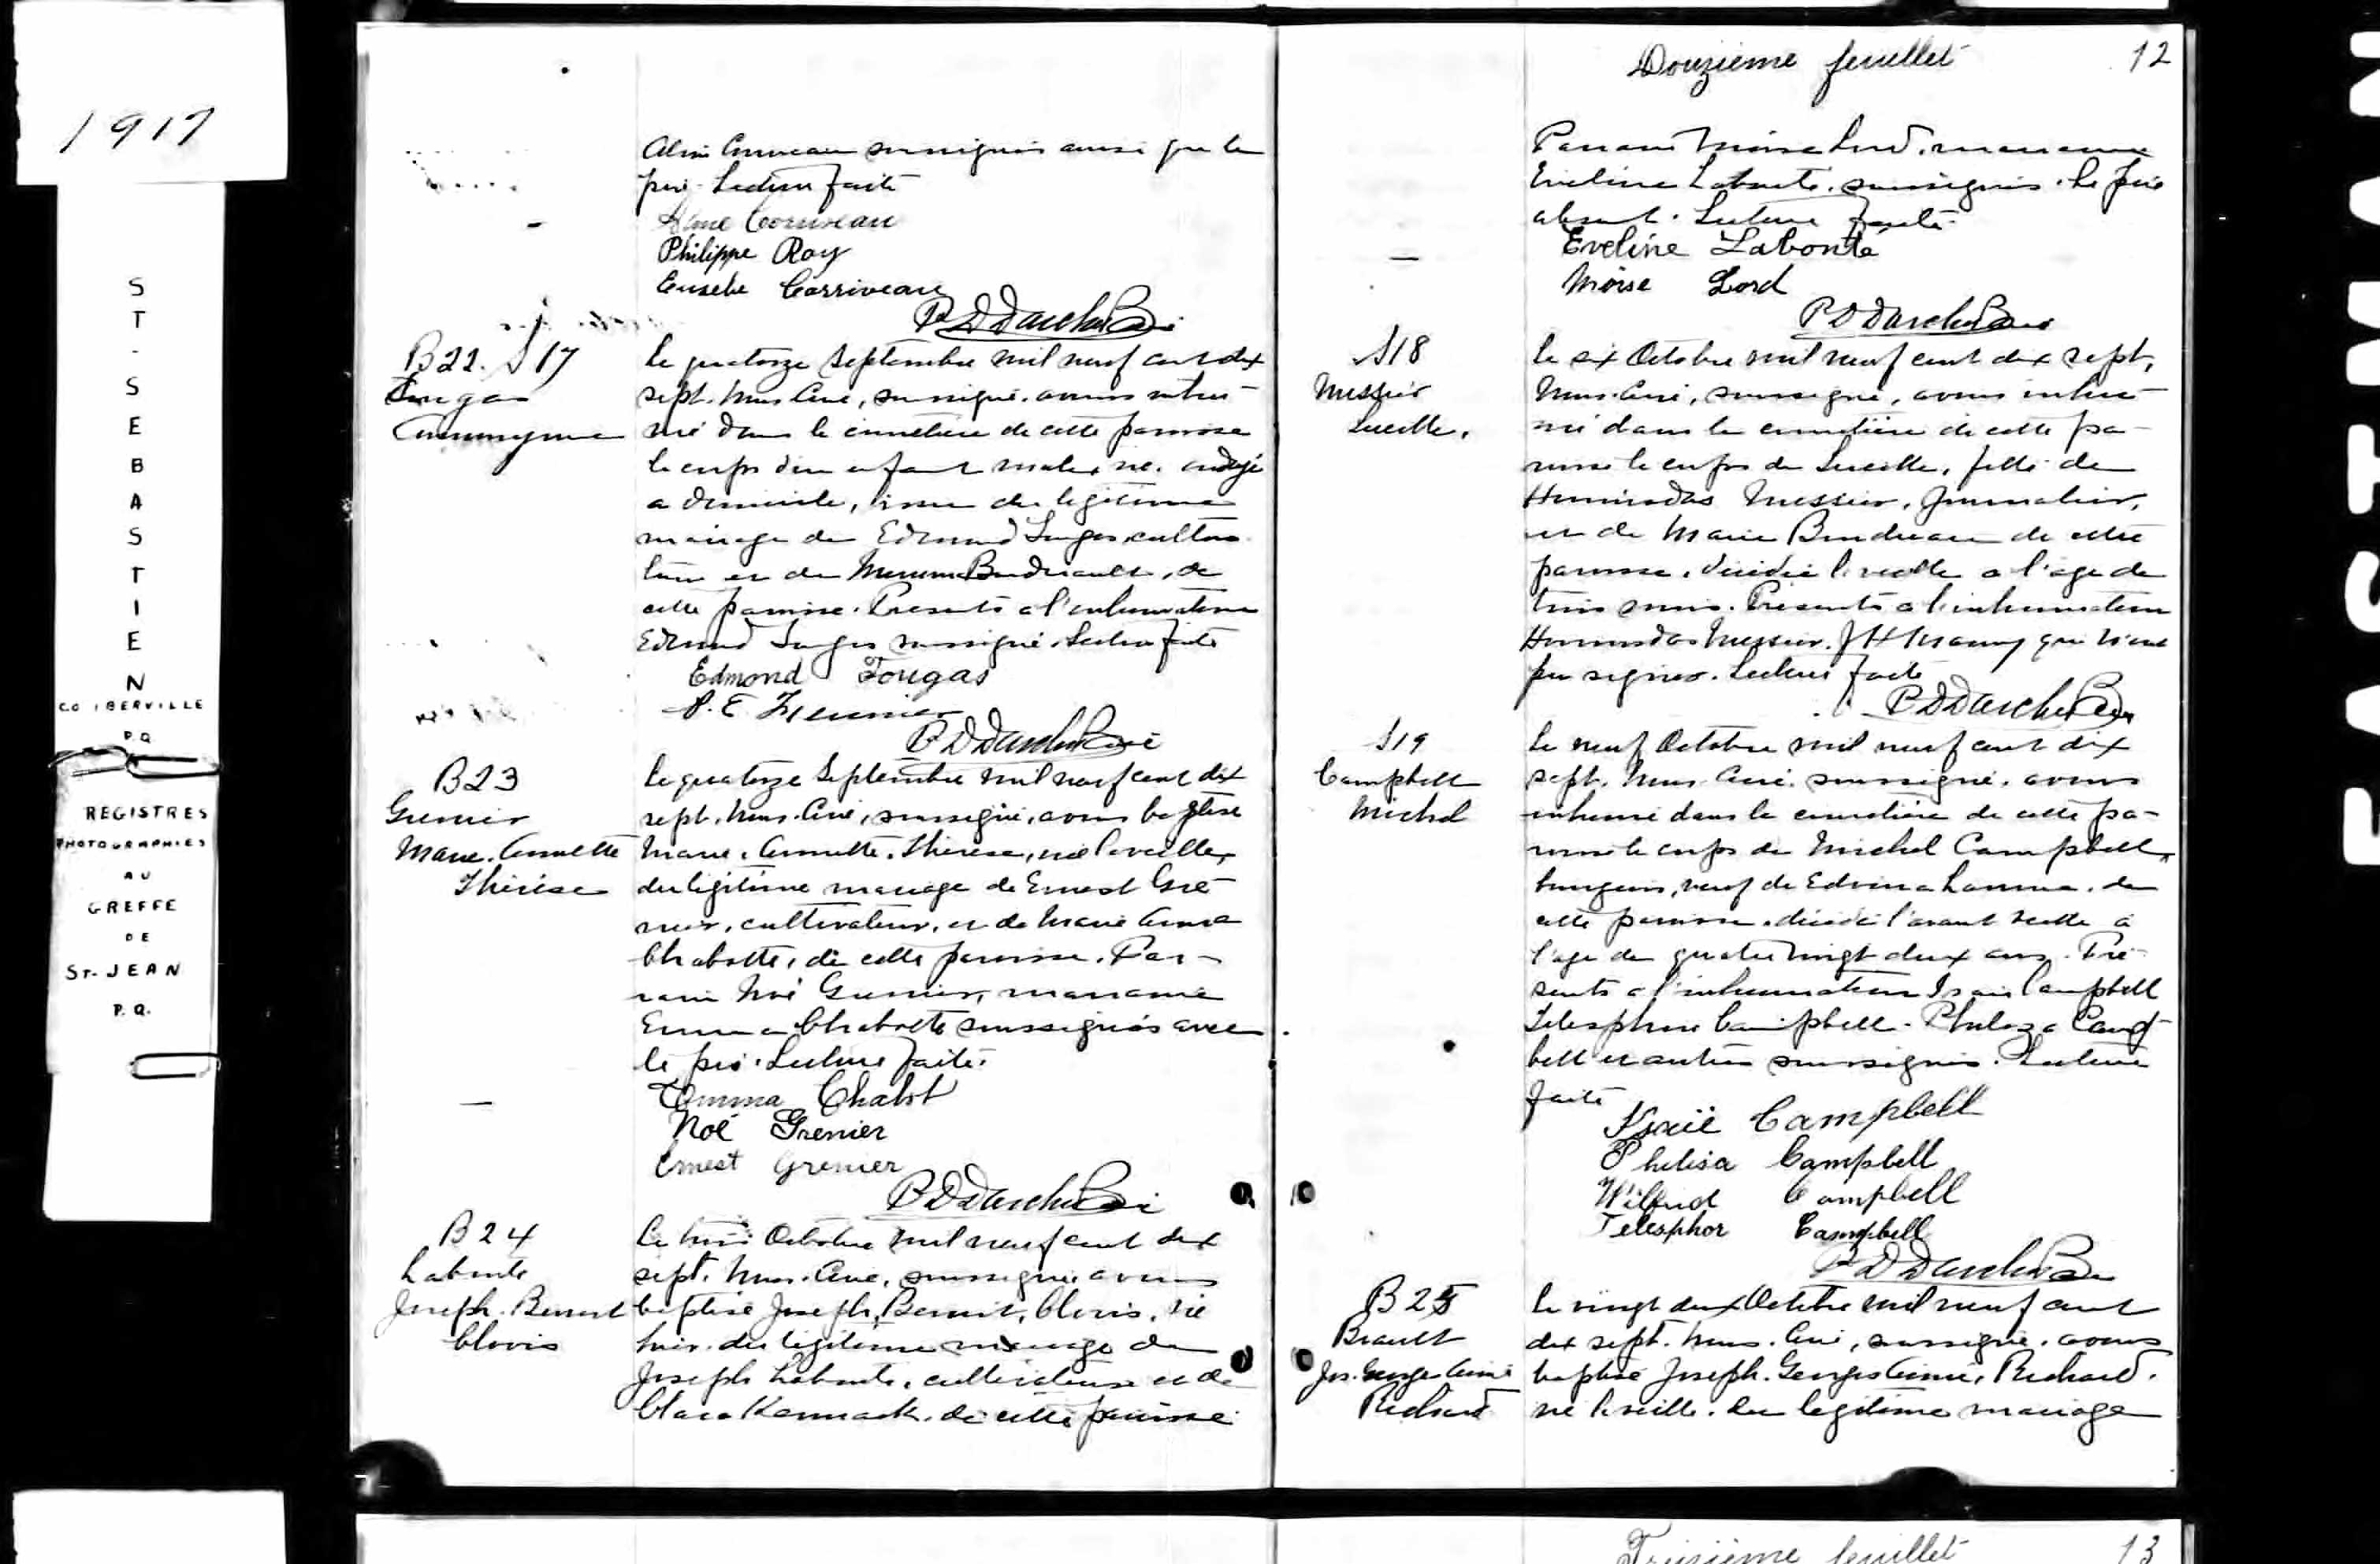 1917
ST-SEBASTIEN
CO IBERVILLE
P.Q
REGISTRES
PHOTOGRAPHIES
AU
GREFFE
DE
ST-JEAN
P.Q.
EASTMAN
père. Lecture faite
Aline Corriveau
Philippe Roy
Eusebe Corriveau
B22. S17
Fugas
Anonyme
Le quatorze Septembre mil neuf cent dix
sept. Nous Curé, soussigné, avons inhu-
mé dans le cimetière de cette paroisse
le corps d'un enfant male, né, ondoyé
a domicile, issu du légitime
mariage de Edmond Fugas, cultiva-
teur et de
cette paroisse. Présents a l'inhumation
Edmond Fugas soussigné. Lecture faite
Edmond Fougas
B23
Grenier
Marie. Annette
Thérèse
Le quatorze Septembre mil neuf cent dix
sept. Nous. Curé, soussigné, avons baptisé
Marie, Annette, Thérèse, née la veille,
du légitime mariage de Ernest Gre-
nier, cultivateur, et de Marie Anna
Chabotte, de cette paroisse. Par-
rain Noé Grenier, marraine
Emma Chabotte soussignés avec
le père. Lecture faite.
Emma Chabot
Noé Grenier
Ernest Grenier
B24
Labonté
Joseph. Benoit
Clovis
Octobre mil neuf cent dix
sept. Nous. Curé, soussigné avons
baptisé Joseph, Benoit, Clovis, né
hier. du légitime mariage de
Joseph Labonté, cultivateur et de
Clara de cette paroisse.
Douzième feuillet 12
Parrain Moise Lord, marraine
Eveline Labonté, soussignés. Le père
absent. Lecture faite.
Eveline Labonté
Moïse Lord
S18
Messier
Lucille.
le six Octobre mil neuf cent dix sept,
Nous. Curé, soussigné, avons inhu-
mé dans le cimetière de cette pa-
roisse le corps de Lucille, fille de
Hormisdas Messier, Journalier,
et de Marie Boudreau de cette
paroisse, décédée la veille a l'age de
trois mois. Présents a l'inhumation
Hormisdas Messier. qui n'ont
pu signer. Lecture faite
S19
Campbell
Michel
Le neuf Octobre mil neuf cent dix
sept. Nous Curé. soussigné. avons
inhumé dans le cimetière de cette pa-
roisse le corps de Michel Campbell,
bourgeois, veuf de Edvina de
cette paroisse. décédé l'avant veille à
l'age de quatre vingt deux ans. Pré-
sents a l'inhumation Isaie Campbell
Telesphore Campbell. Camp-
bell et autres soussignés. Lecture
faite
Isaïe Campbell
Phelisa Campbell
Wilfrid Campbell
Telesphor Campbell
B25
Brault
Jos. George Aimé
Richard
le vingt deux Octobre mil neuf cent
dix sept. Nous. Curé, soussigné. avons
baptisé Joseph. Georges Aimé, Richard.
né la veille. du légitime mariage
Treizième feuillet 13